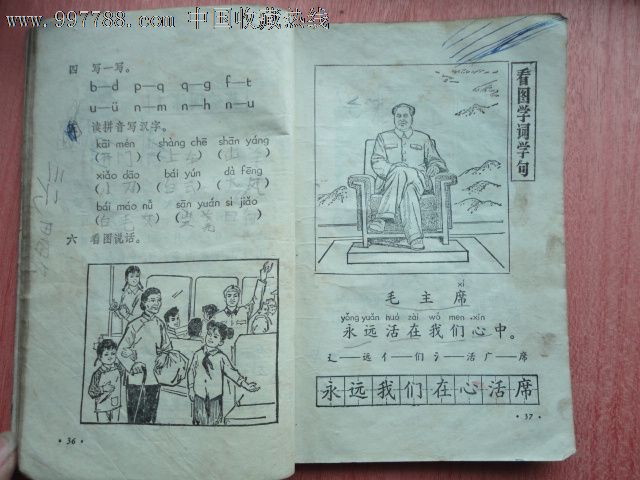 www.997788.com 中国收藏热线
四 写一写。
b—d p—q q—g f—t
u—ü n—m n—h n—u
五 读拼音写汉字。
kāi mén shàng chē shān yáng
xiǎo dāo bái yún dà fēng
bái máo nǚ sān yuán sì jiǎo
六 看图说话。
· 36 ·
看图学词学句
xí
毛主席
yǒng yuǎn huó zài wǒ men xīn
永远活在我们心中。
辶—远 亻—们 氵—活 广—席
永远我们在心活席
· 37 ·